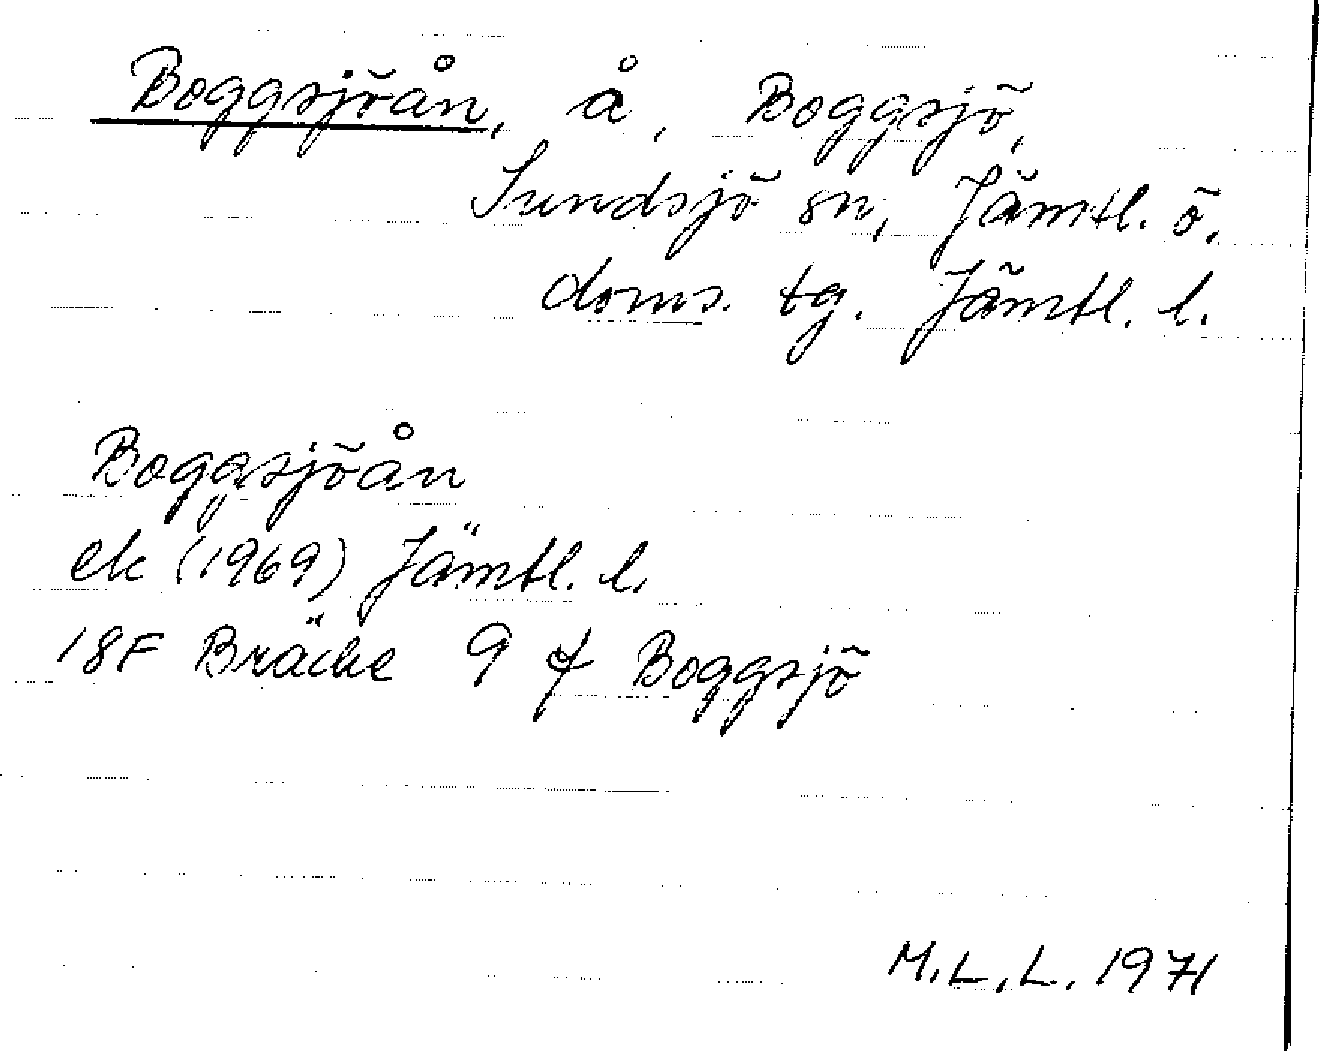 Boggsjöån, å, Boggsjö,
Sundsjö sn, Jämtl. ö.
doms. tg. Jämtl. l.
Boggsjöån
ek (1969) Jämtl. l.
18F Bräcke 9 f Boggsjö
M.L.L. 1971